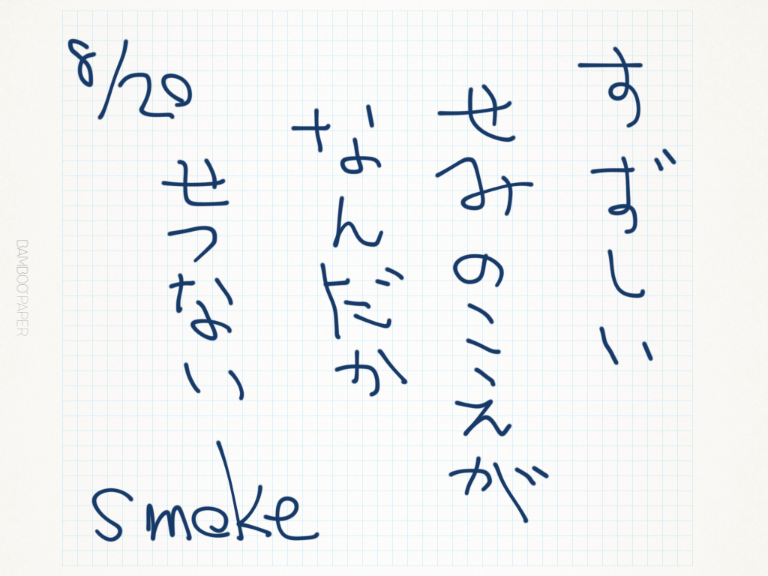 すずしい
せみのこえが
なんだか
せつない
8/20
smoke
BAMBOOPAPER